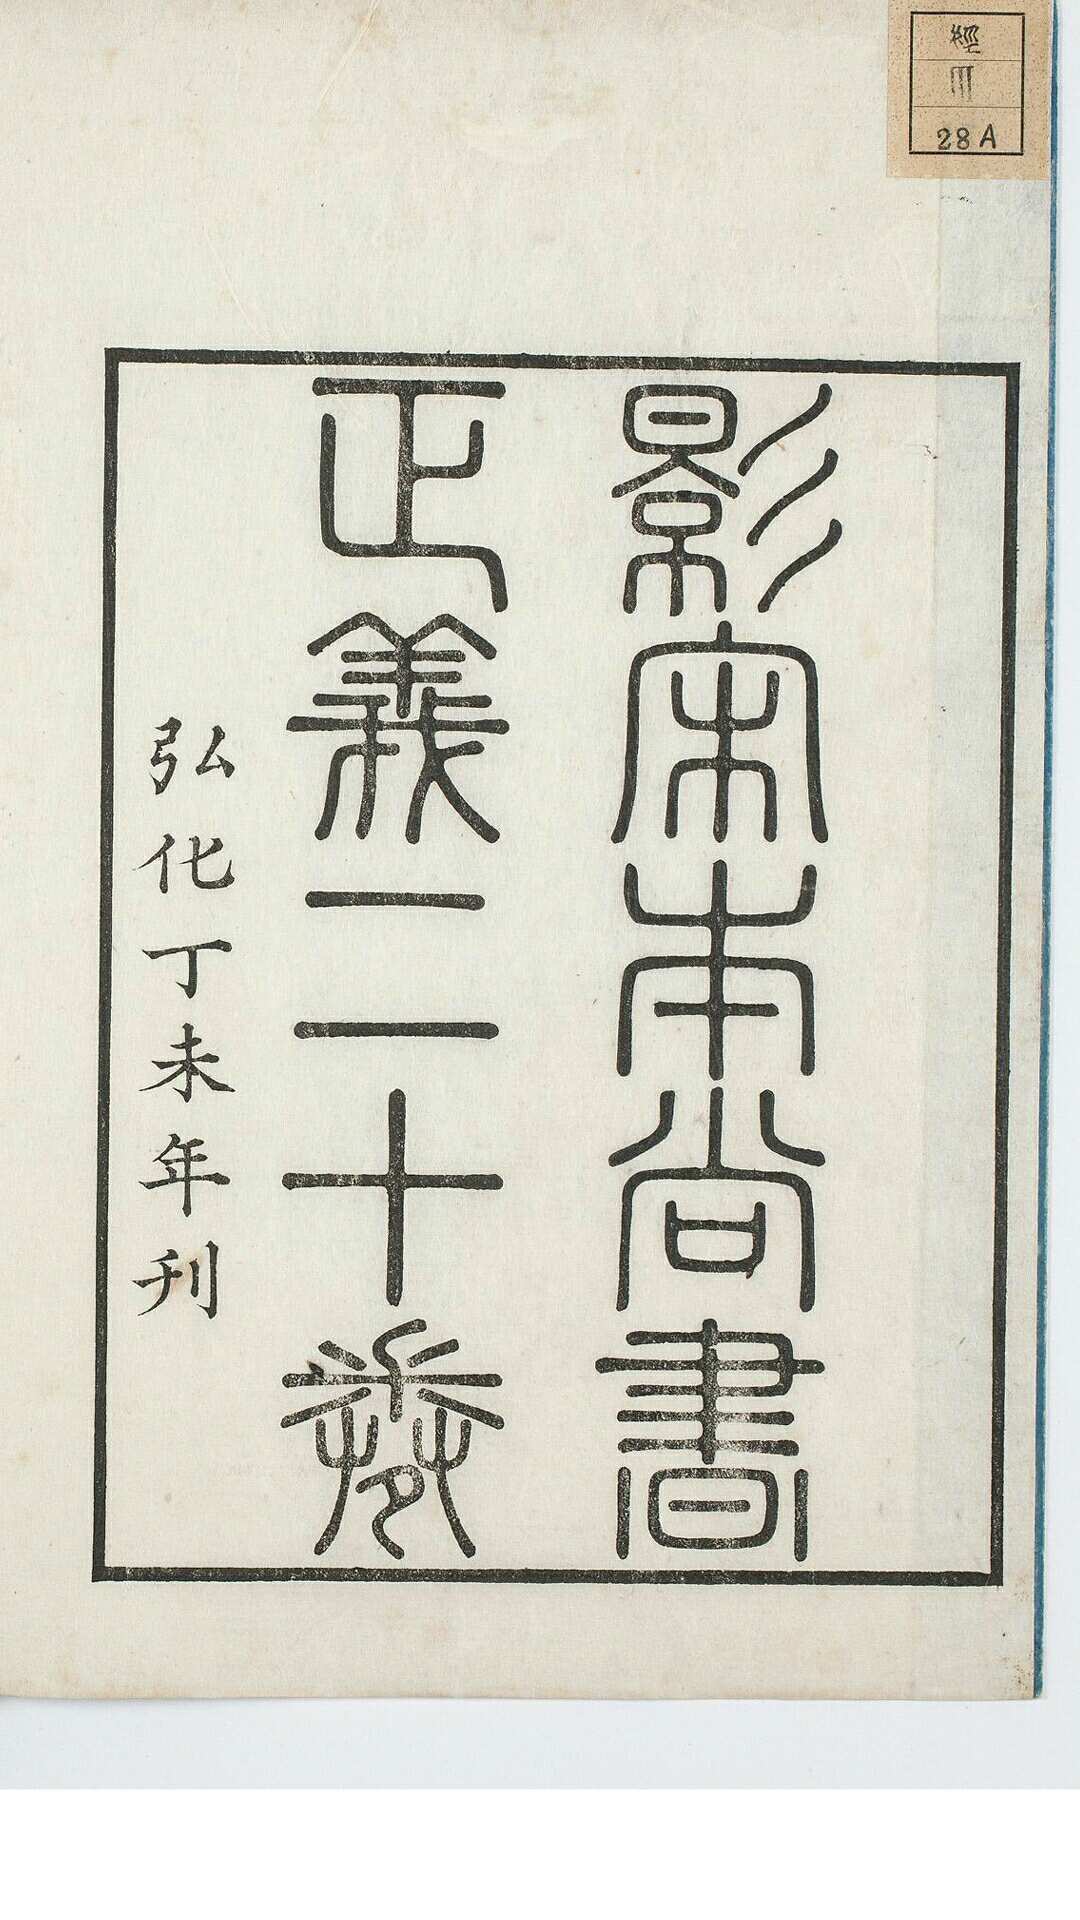 經
III
28A
影宋本尚書
正義二十卷
弘化丁未年刊